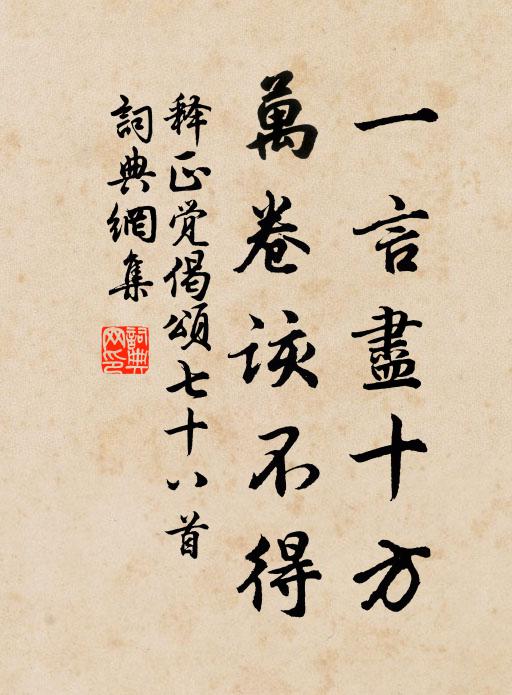 一言盡十方
萬卷該不得
释正觉偈頌七十八首
詞典網集
詞典網印